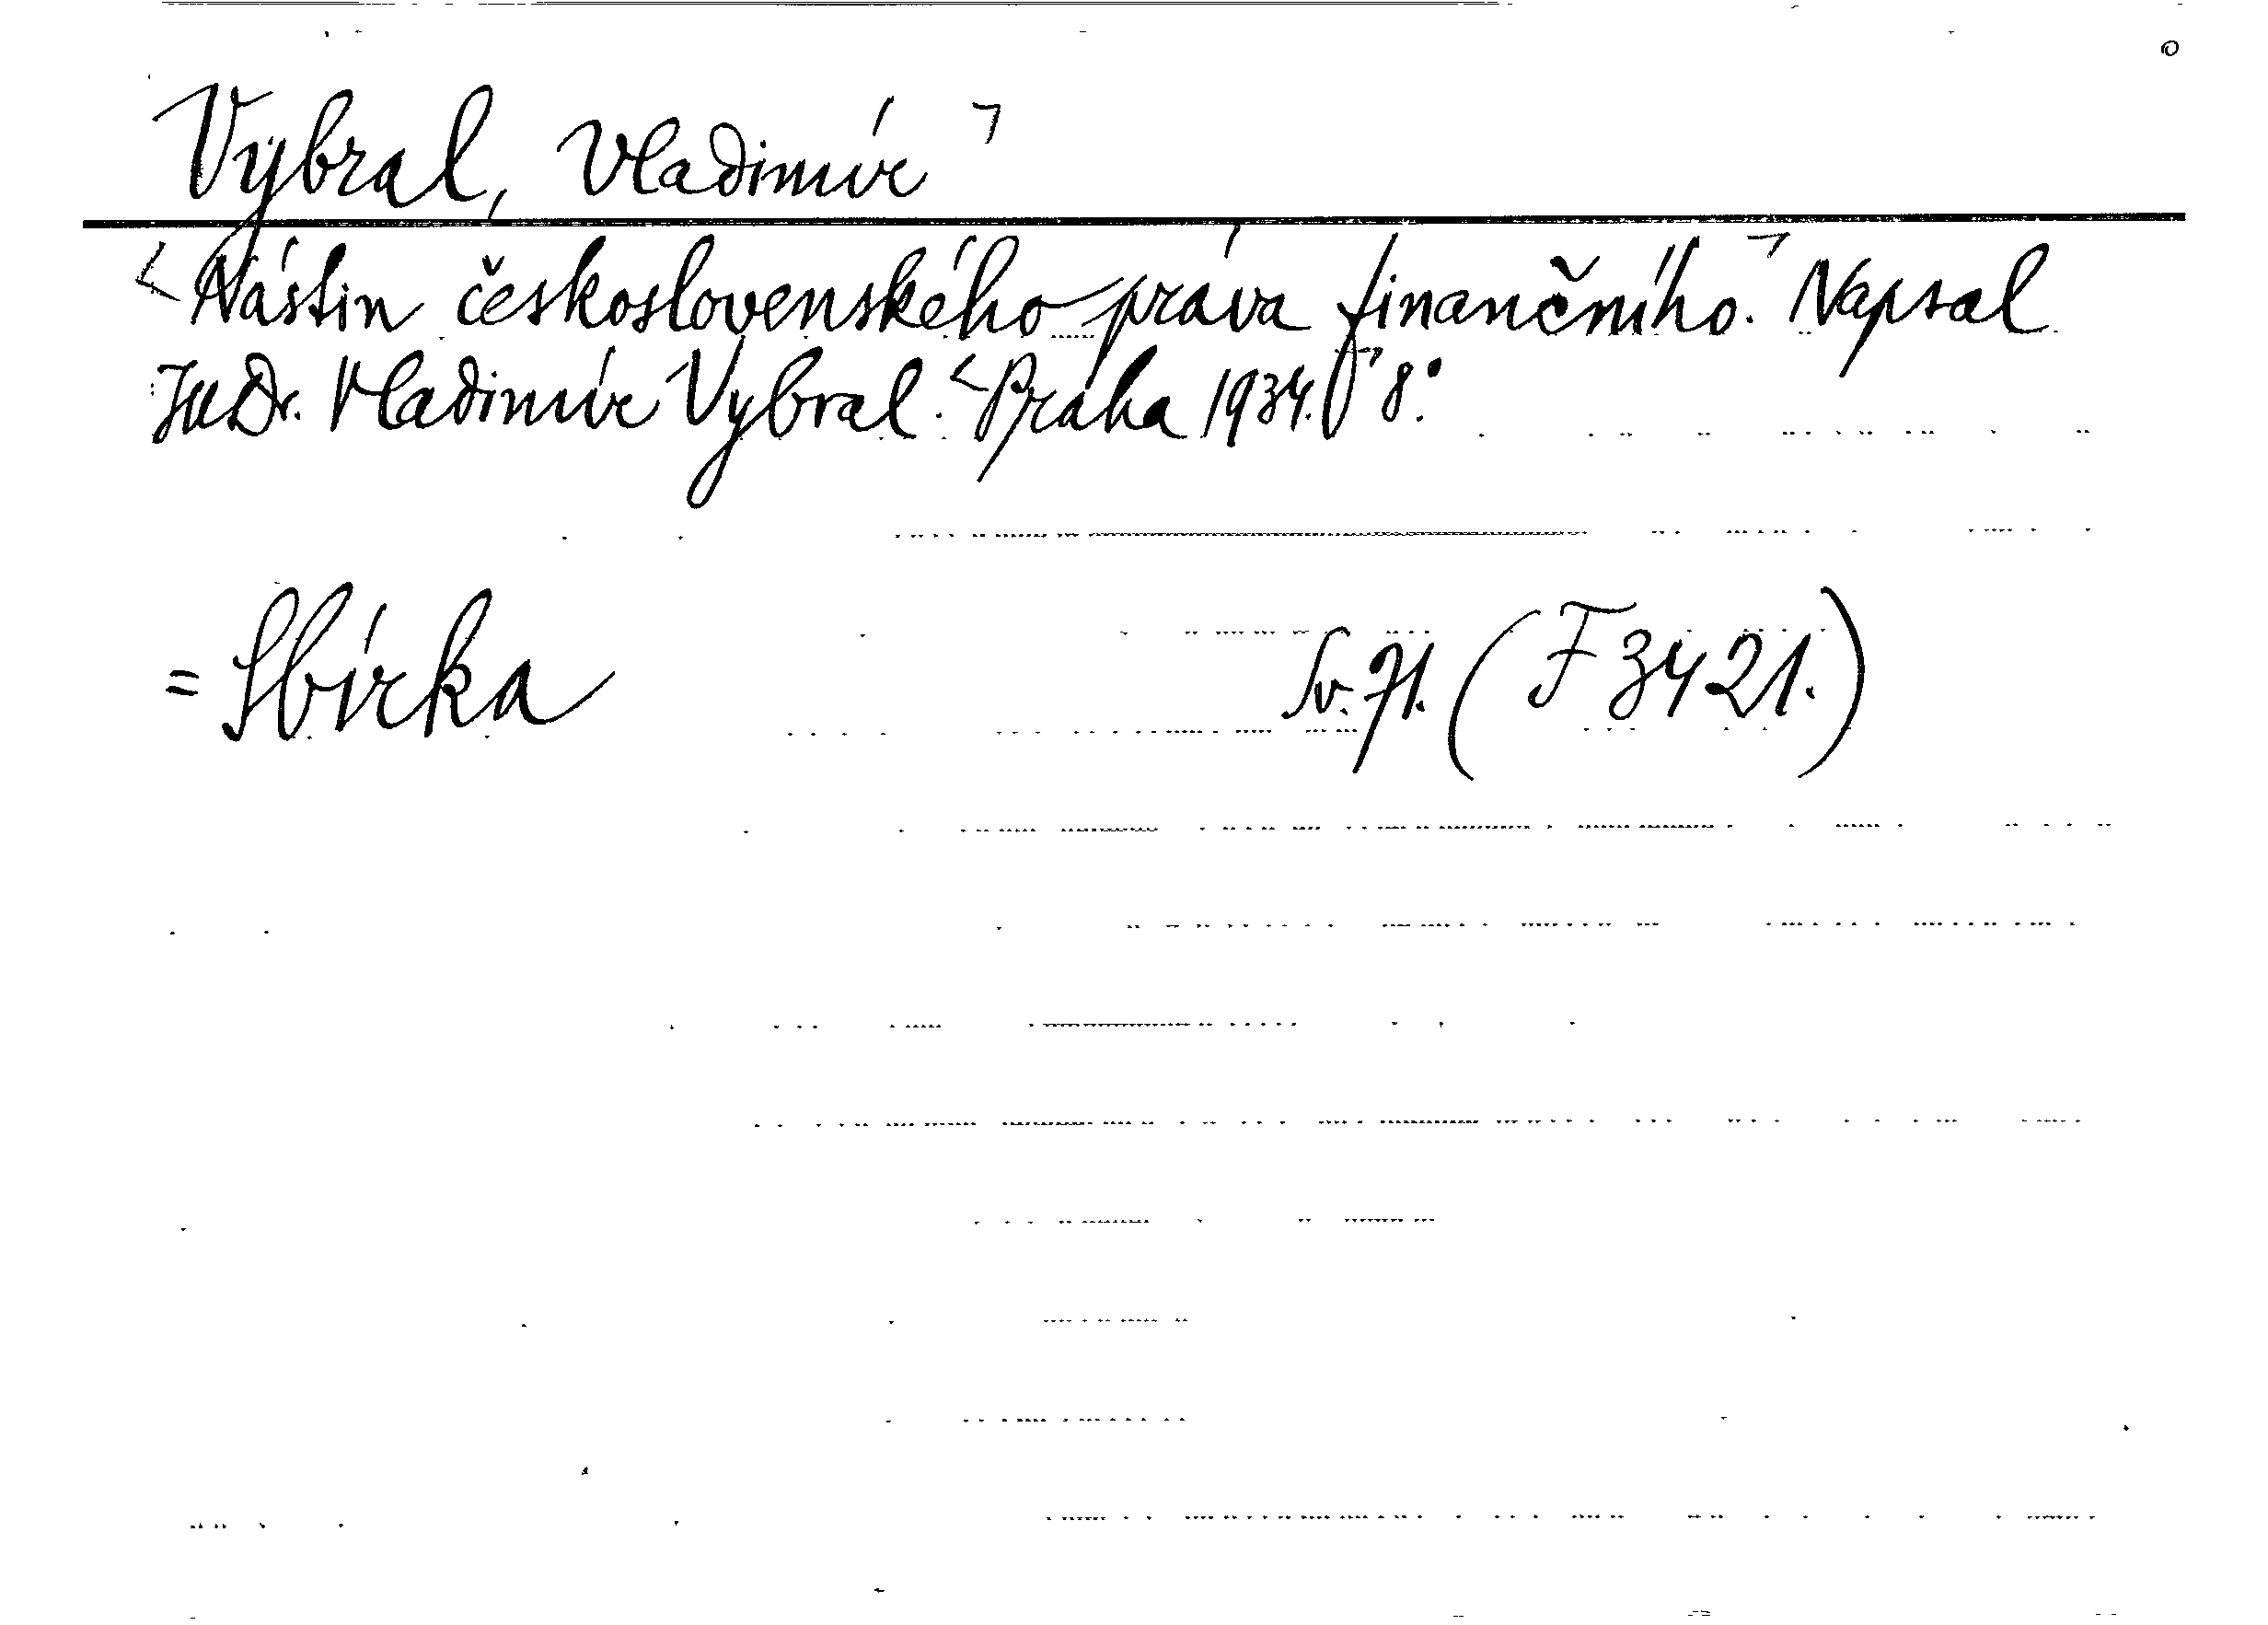 Vybral, Vladimír ¬
<Nástin československého práva finančního.¬ Napsal
JUDr. Vladimír Vybral. <Praha 1934.¬ 8°.
= Sbírka Sv. 71. (F 3421.)